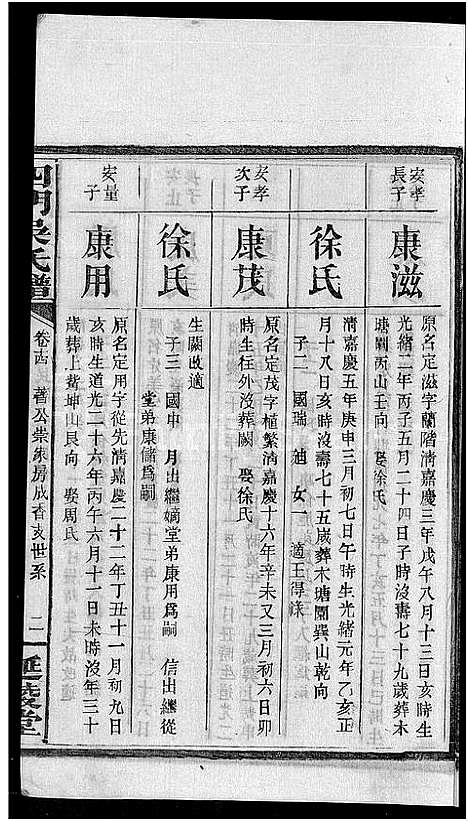 安孝長子
康滋
原名定滋字蘭階清嘉慶三年戊午八月十三日亥時生
光緒二年丙子五月二十四日子時沒壽七十九歲葬木
塘關丙山壬向 娶徐氏
徐氏
清嘉慶五年庚申三月初七日午時生光緒元年乙亥正
月十八日亥時沒壽七十五歲葬木塘關巽山乾向
子二 國瑞 迪 女一 適王得
安孝次子
康茂
原名定茂字植繁清嘉慶十六年辛未又三月初六日卯
時生往外沒葬闕 娶徐氏
徐氏
生闕故適
子三 國申 月出繼嫡堂弟康用為嗣 信出繼從
堂弟康儲為嗣
安量子
康用
原名定用字從先清嘉慶二十二年丁丑十一月初九日
亥時生道光二十六年丙午六月十一日未時沒年三十
歲葬上黃坤山艮向 娶周氏
四門吳氏譜
卷十四 耆公崇泉房成香亥世系
二
延慶堂